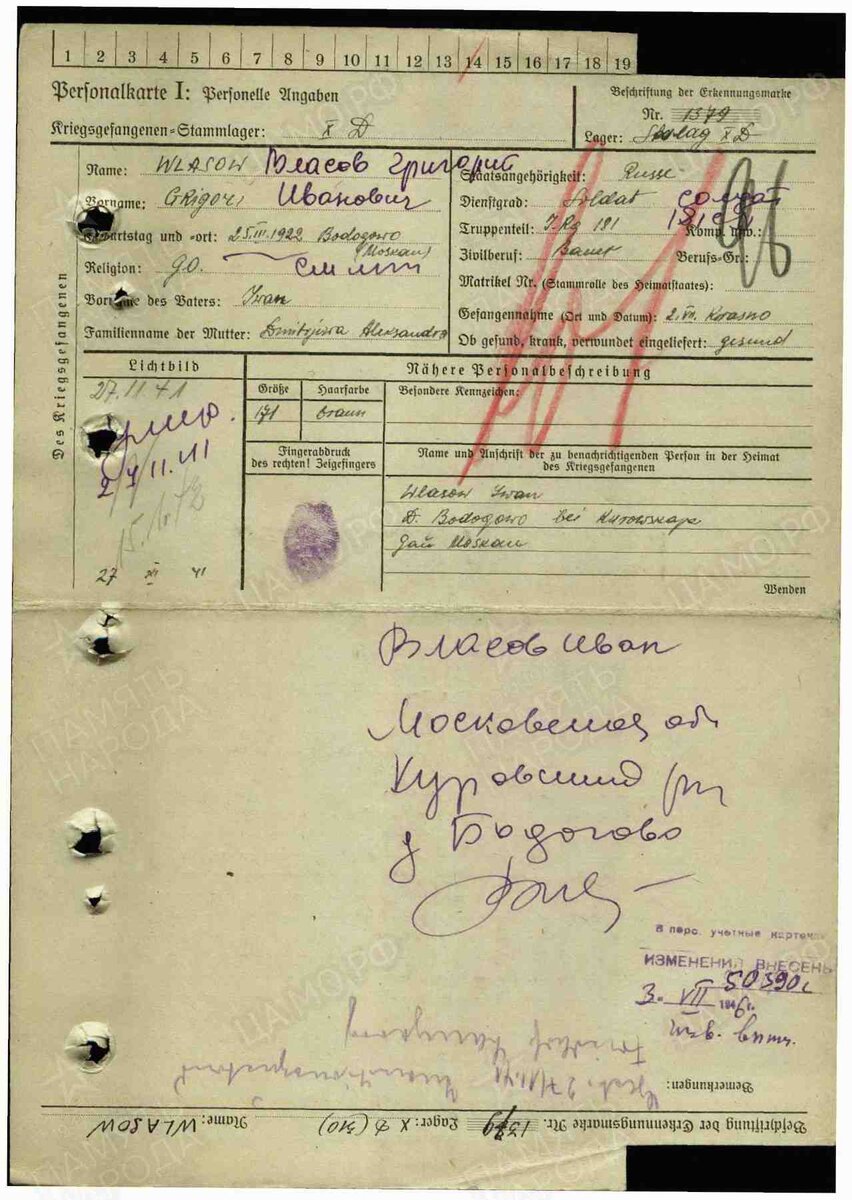 1 2 3 4 5 6 7 8 9 10 11 12 13 14 15 16 17 18 19
Personalkarte I: Personelle Angaben
Kriegsgefangenen-Stammlager: X D
Beschriftung der Erkennungsmarke
Nr. 1379
Lager: Stalag X D
Des Kriegsgefangenen
Name: WLASOW Власов Григорий
Vorname: GRigori Иванович
Geburtstag und -ort: 25.III.1922 Bodogowo
(Moskau)
Religion: g.o.
Vorname des Vaters: Iwan
Familienname der Mutter: Dmitrjewa Aleksandra
Staatsangehörigkeit: Russe
Dienstgrad: Soldat солдат
Truppenteil: J.Rg 181 181 СП Komp. usw.:
Zivilberuf: Bauer Berufs-Gr.:
Matrikel Nr. (Stammrolle des Heimatstaates):
Gefangennahme (Ort und Datum): 2.VII. Krasno
Ob gesund, krank, verwundet eingeliefert: gesund
96
Lichtbild
27.11.41
умер.
27.11.41
15.1.42
27 XI 41
Nähere Personalbeschreibung
Größe Haarfarbe Besondere Kennzeichen:
171 braun
Fingerabdruck
des rechten! Zeigefingers
Name und Anschrift der zu benachrichtigenden Person in der Heimat
des Kriegsgefangenen
Wlasow Iwan
D. Bodogowo bei Kurowskaja
Gau Moskau
Wenden
Власов Иван
Московская об
Куровский рн
д Бодогово
В перс. учетные карточки
ИЗМЕНЕНИЯ ВНЕСЕНЫ
50390с
3. VII 1946г.
Bemerkungen:
Gest. 27/11.41
Friedhof
Beschriftung der Erkennungsmarke Nr. 1379 Lager: X D (310) Name: WLASOW
ПАМЯТЬ НАРОДА
ЦАМО.РФ